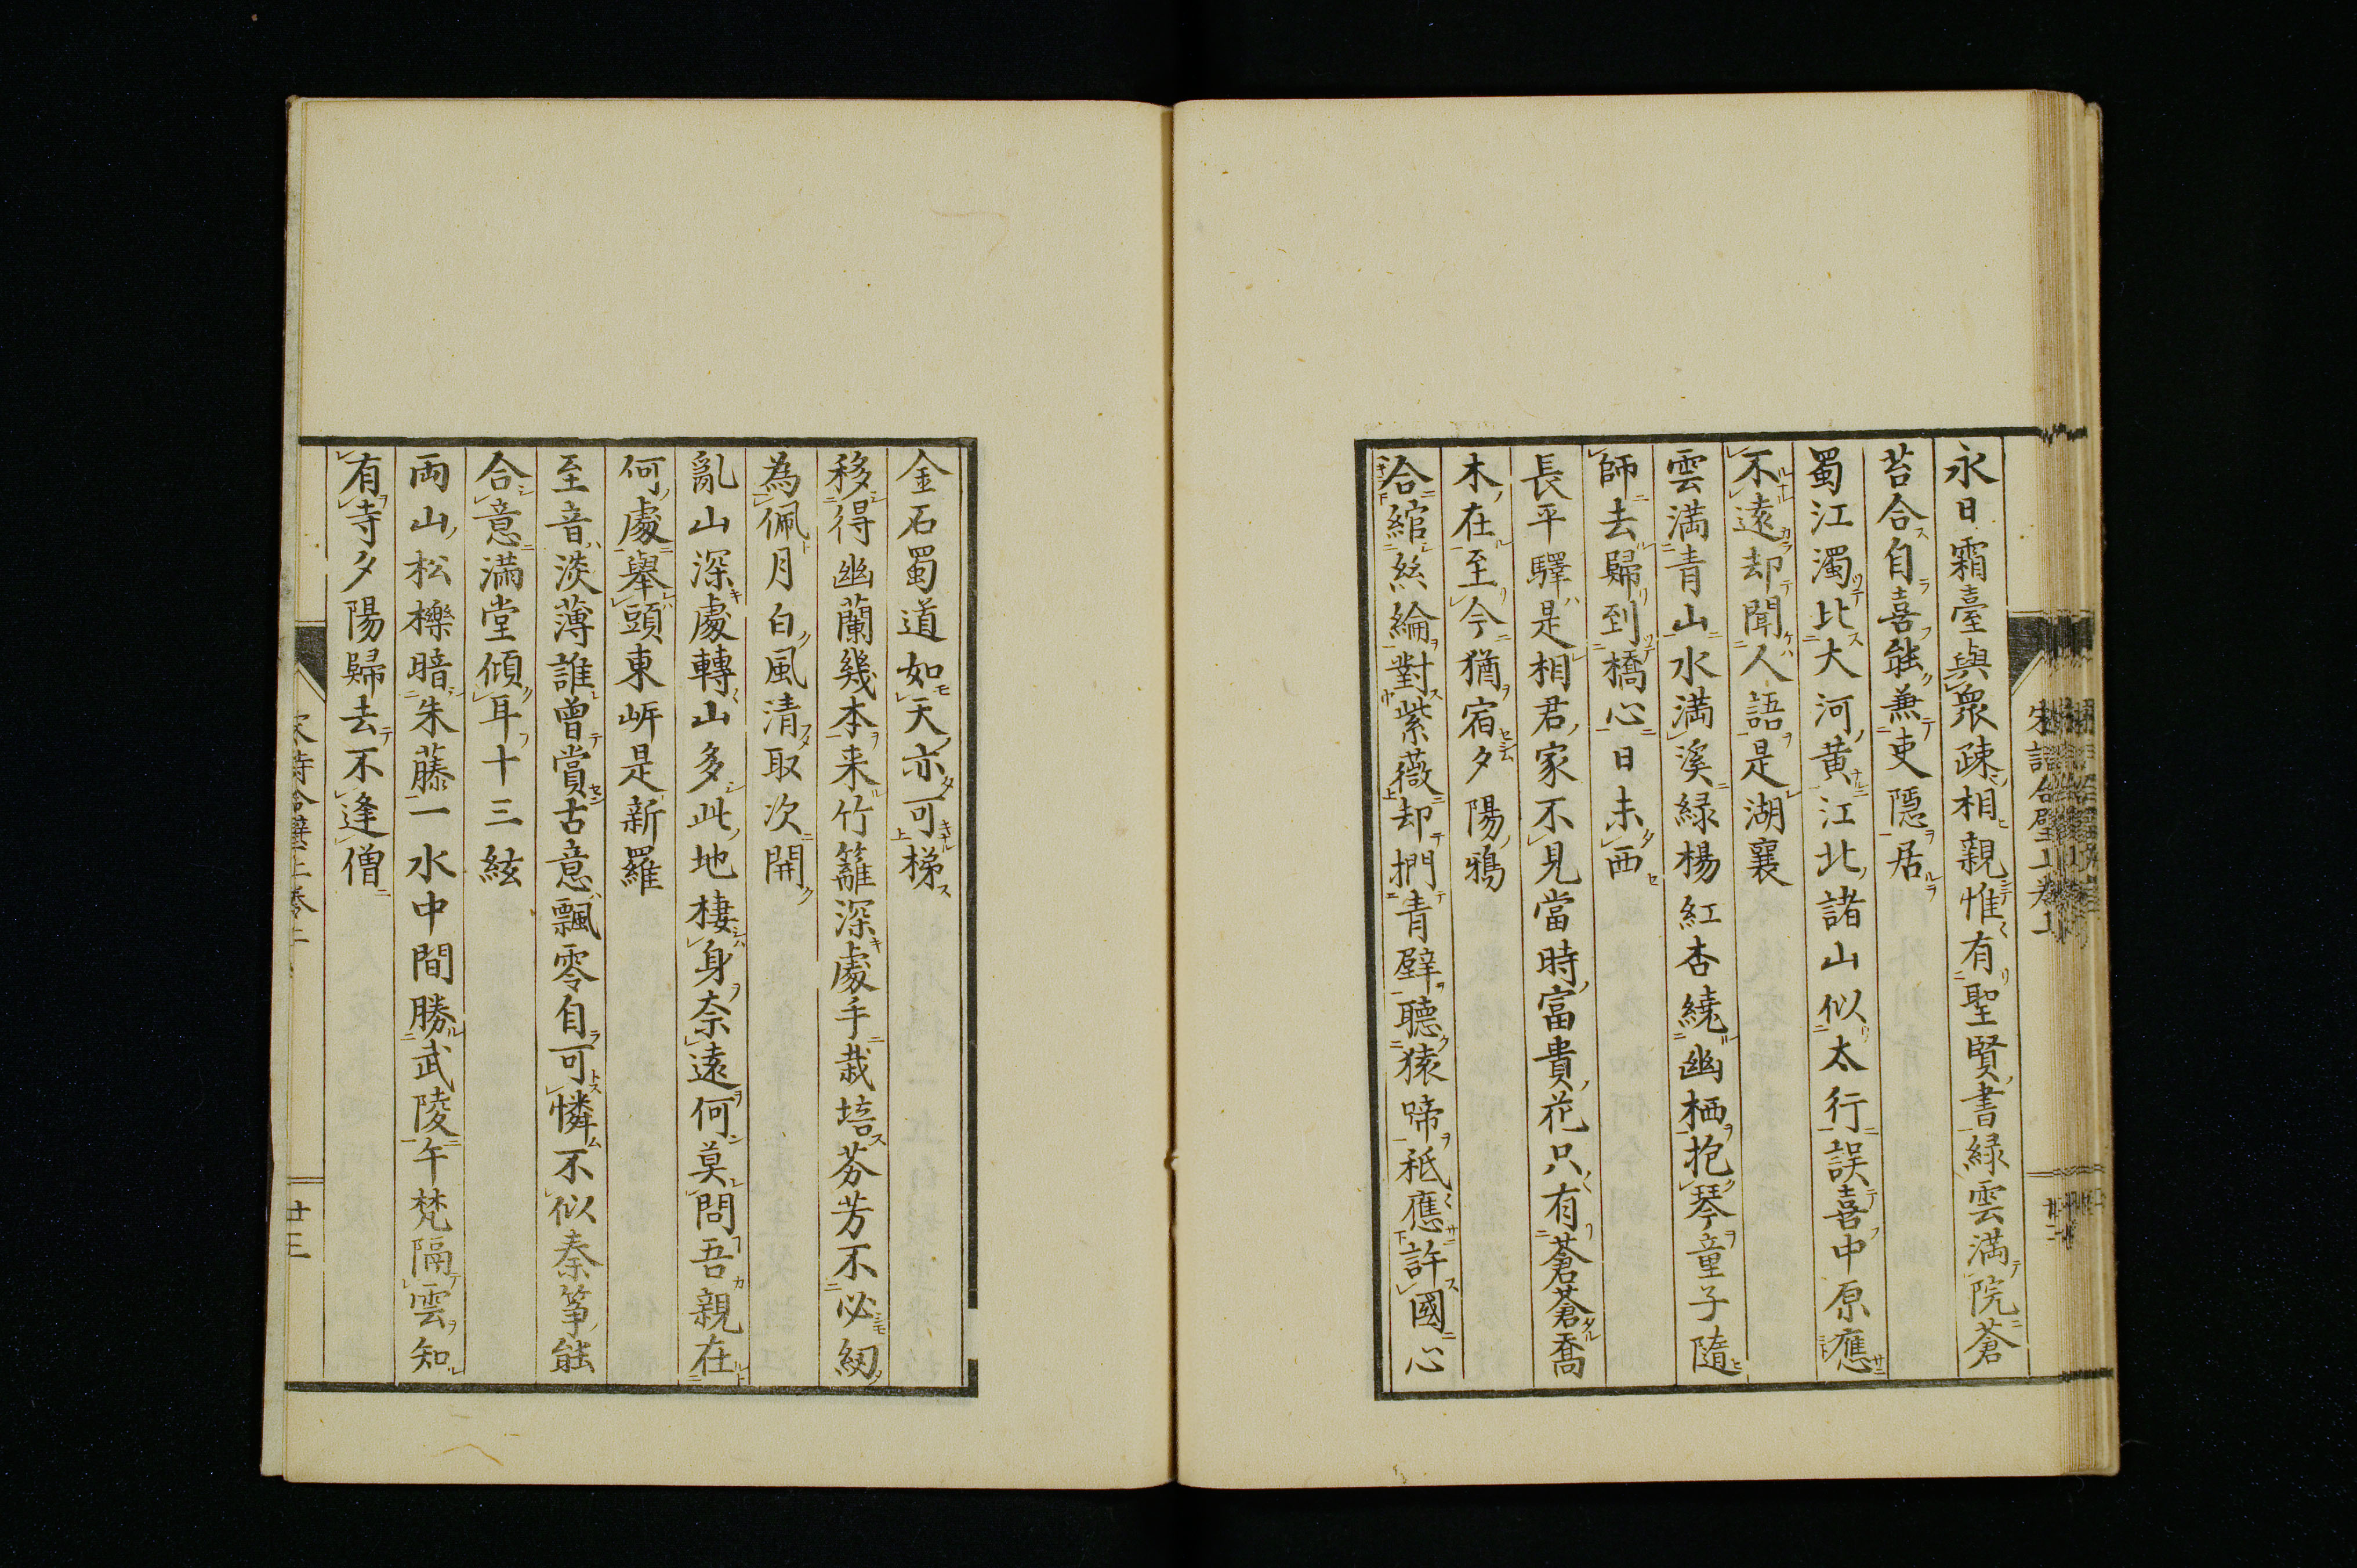 永日霜臺與衆疎相親惟有聖賢書緑雲滿院蒼
苔合自喜能兼吏隠居
蜀江濁比大河黄江北諸山似太行誤喜中原應
不遠却聞人語是湖襄
雲満青山水満溪緑楊紅杏繞幽栖抱琴童子隨
師去歸到橋心日未西
長平驛是相君家不見當時富貴花只有蒼蒼喬
木在至今猶宿夕陽鴉
合綰絲綸對紫薇却捫青壁聽猿啼秖應許國心
金石蜀道如天亦可梯
移得幽蘭幾本来竹籬深處手栽培芬芳不必紉
為佩月白風清取次開
亂山深處轉山多此地棲身奈遠何莫問吾親在
何處舉頭東岍是新羅
至音淡薄誰曾賞古意飄零自可憐不似秦筝能
合意滿堂傾耳十三絃
両山松櫟暗朱藤一水中間勝武陵午梵隔雲知
有寺夕陽歸去不逢僧
廿三